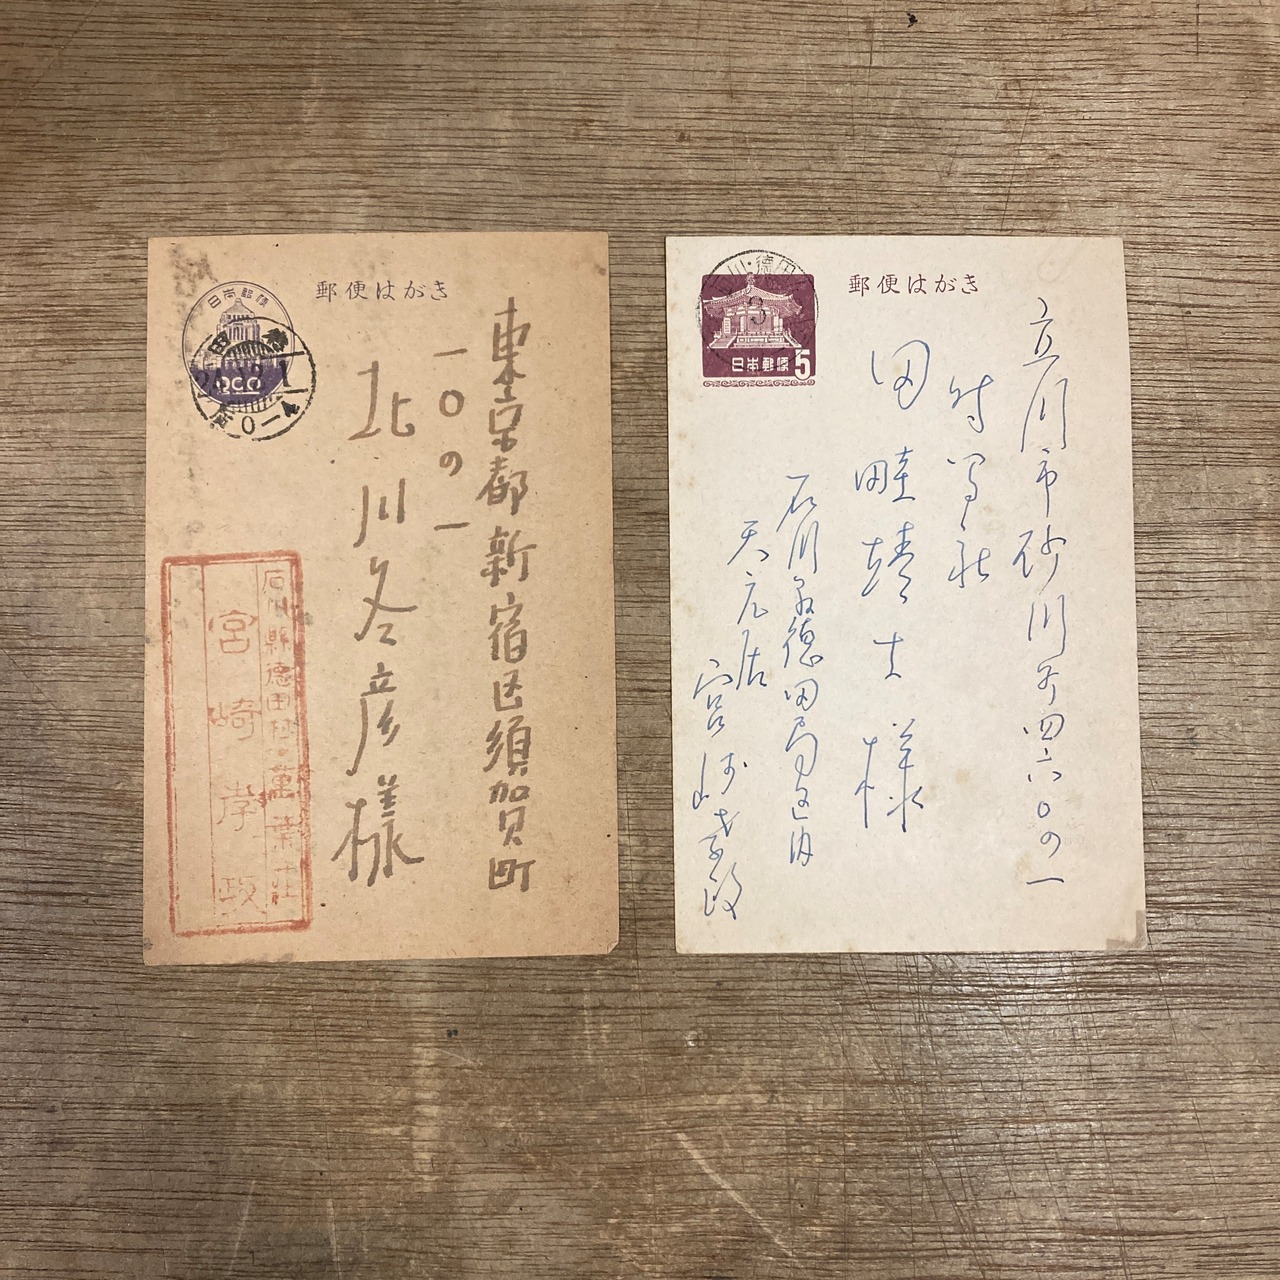 郵便はがき
日本郵便
200
東京都新宿区須賀町
一〇の一
北川冬彦様
石川縣德田村・萬葉荘
宮崎孝政
郵便はがき
川・德田
日本郵便
5
立川市砂川町四六〇の一
時間社
田畦靖士様
石川県徳田局区内
天充居
宮崎孝政